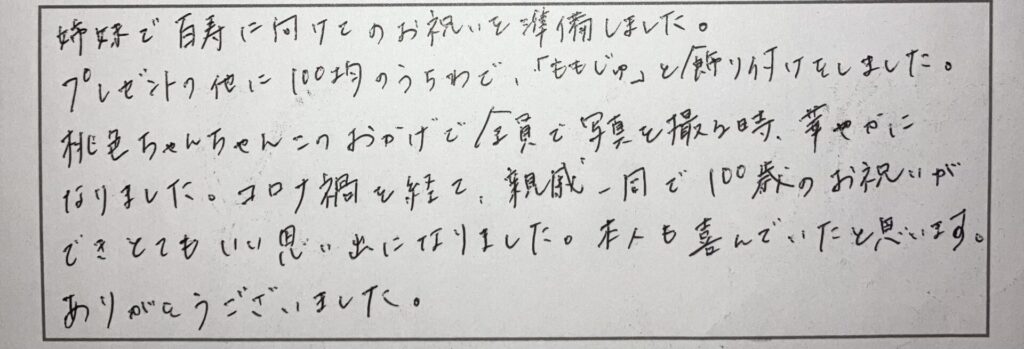 姉妹で百寿に向けてのお祝いを準備しました。
プレゼントの他に100均のうちわで、「ももじゅ」と飾り付けをしました。
桃色ちゃんちゃんこのおかげで全員で写真を撮る時、華やかに
なりました。コロナ禍を経て、親戚一同で100歳のお祝いが
できとてもいい思い出になりました。本人も喜んでいたと思います。
ありがとうございました。